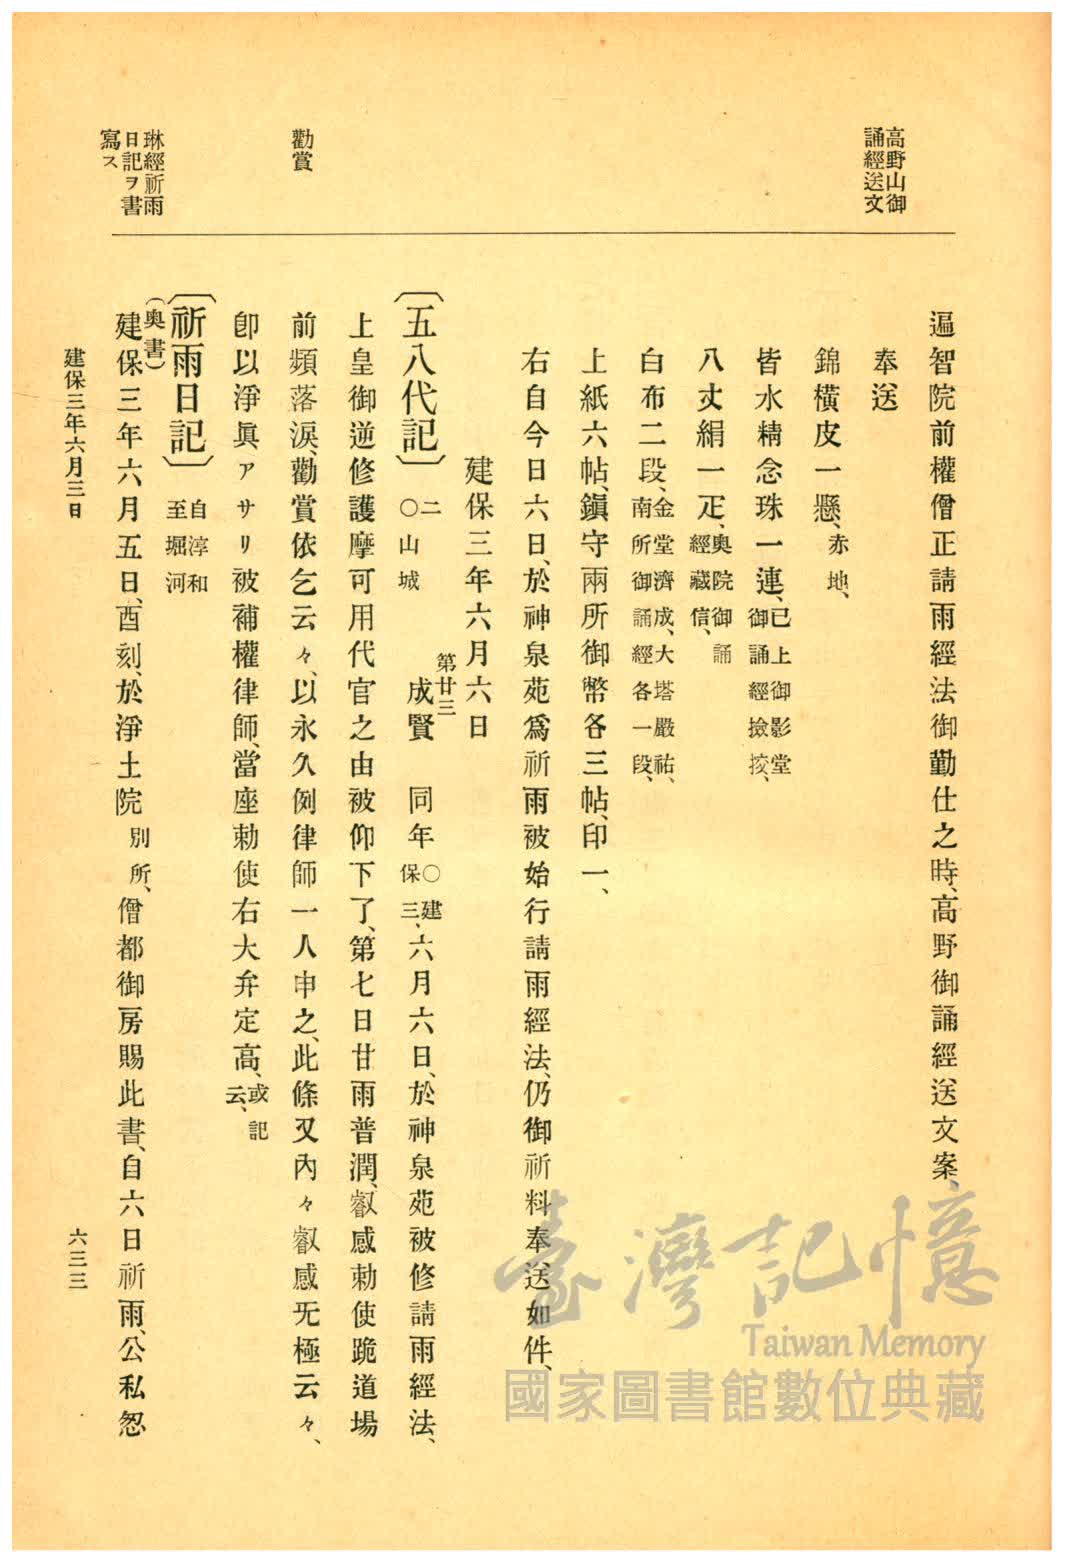 高野山御
誦經送文
勸賞
琳經祈雨
日記ヲ書
寫ス
遍智院前權僧正請雨經法御勤仕之時、高野御誦經送文案、
奉送
錦橫皮一懸、赤地、
皆水精念珠一連、已上御影堂御誦經撿挍、
八丈絹一疋、奧院御誦經藏信、
白布二段、金堂濟成、大塔嚴祐、南所御誦經各一段、
上紙六帖、鎭守兩所御幣各三帖、印一、
右自今日六日、於神泉苑爲祈雨被始行請雨經法、仍御祈料奉送如件、
建保三年六月六日
〔五八代記〕二〇山城 第廿三成賢 同年〇建保三、六月六日、於神泉苑被修請雨經法、
上皇御逆修護摩可用代官之由被仰下了、第七日甘雨普潤、叡感勅使跪道場
前頻落淚、勸賞依乞云々、以永久例律師一人申之、此條又內々叡感旡極云々、
卽以淨眞アサリ被補權律師、當座勅使右大弁定高、或記云、
〔祈雨日記〕自淳和至堀河
（奧書）
建保三年六月五日、酉刻、於淨土院別所、僧都御房賜此書、自六日祈雨、公私怱
建保三年六月三日
六三三
臺灣記憶
Taiwan Memory
國家圖書館數位典藏